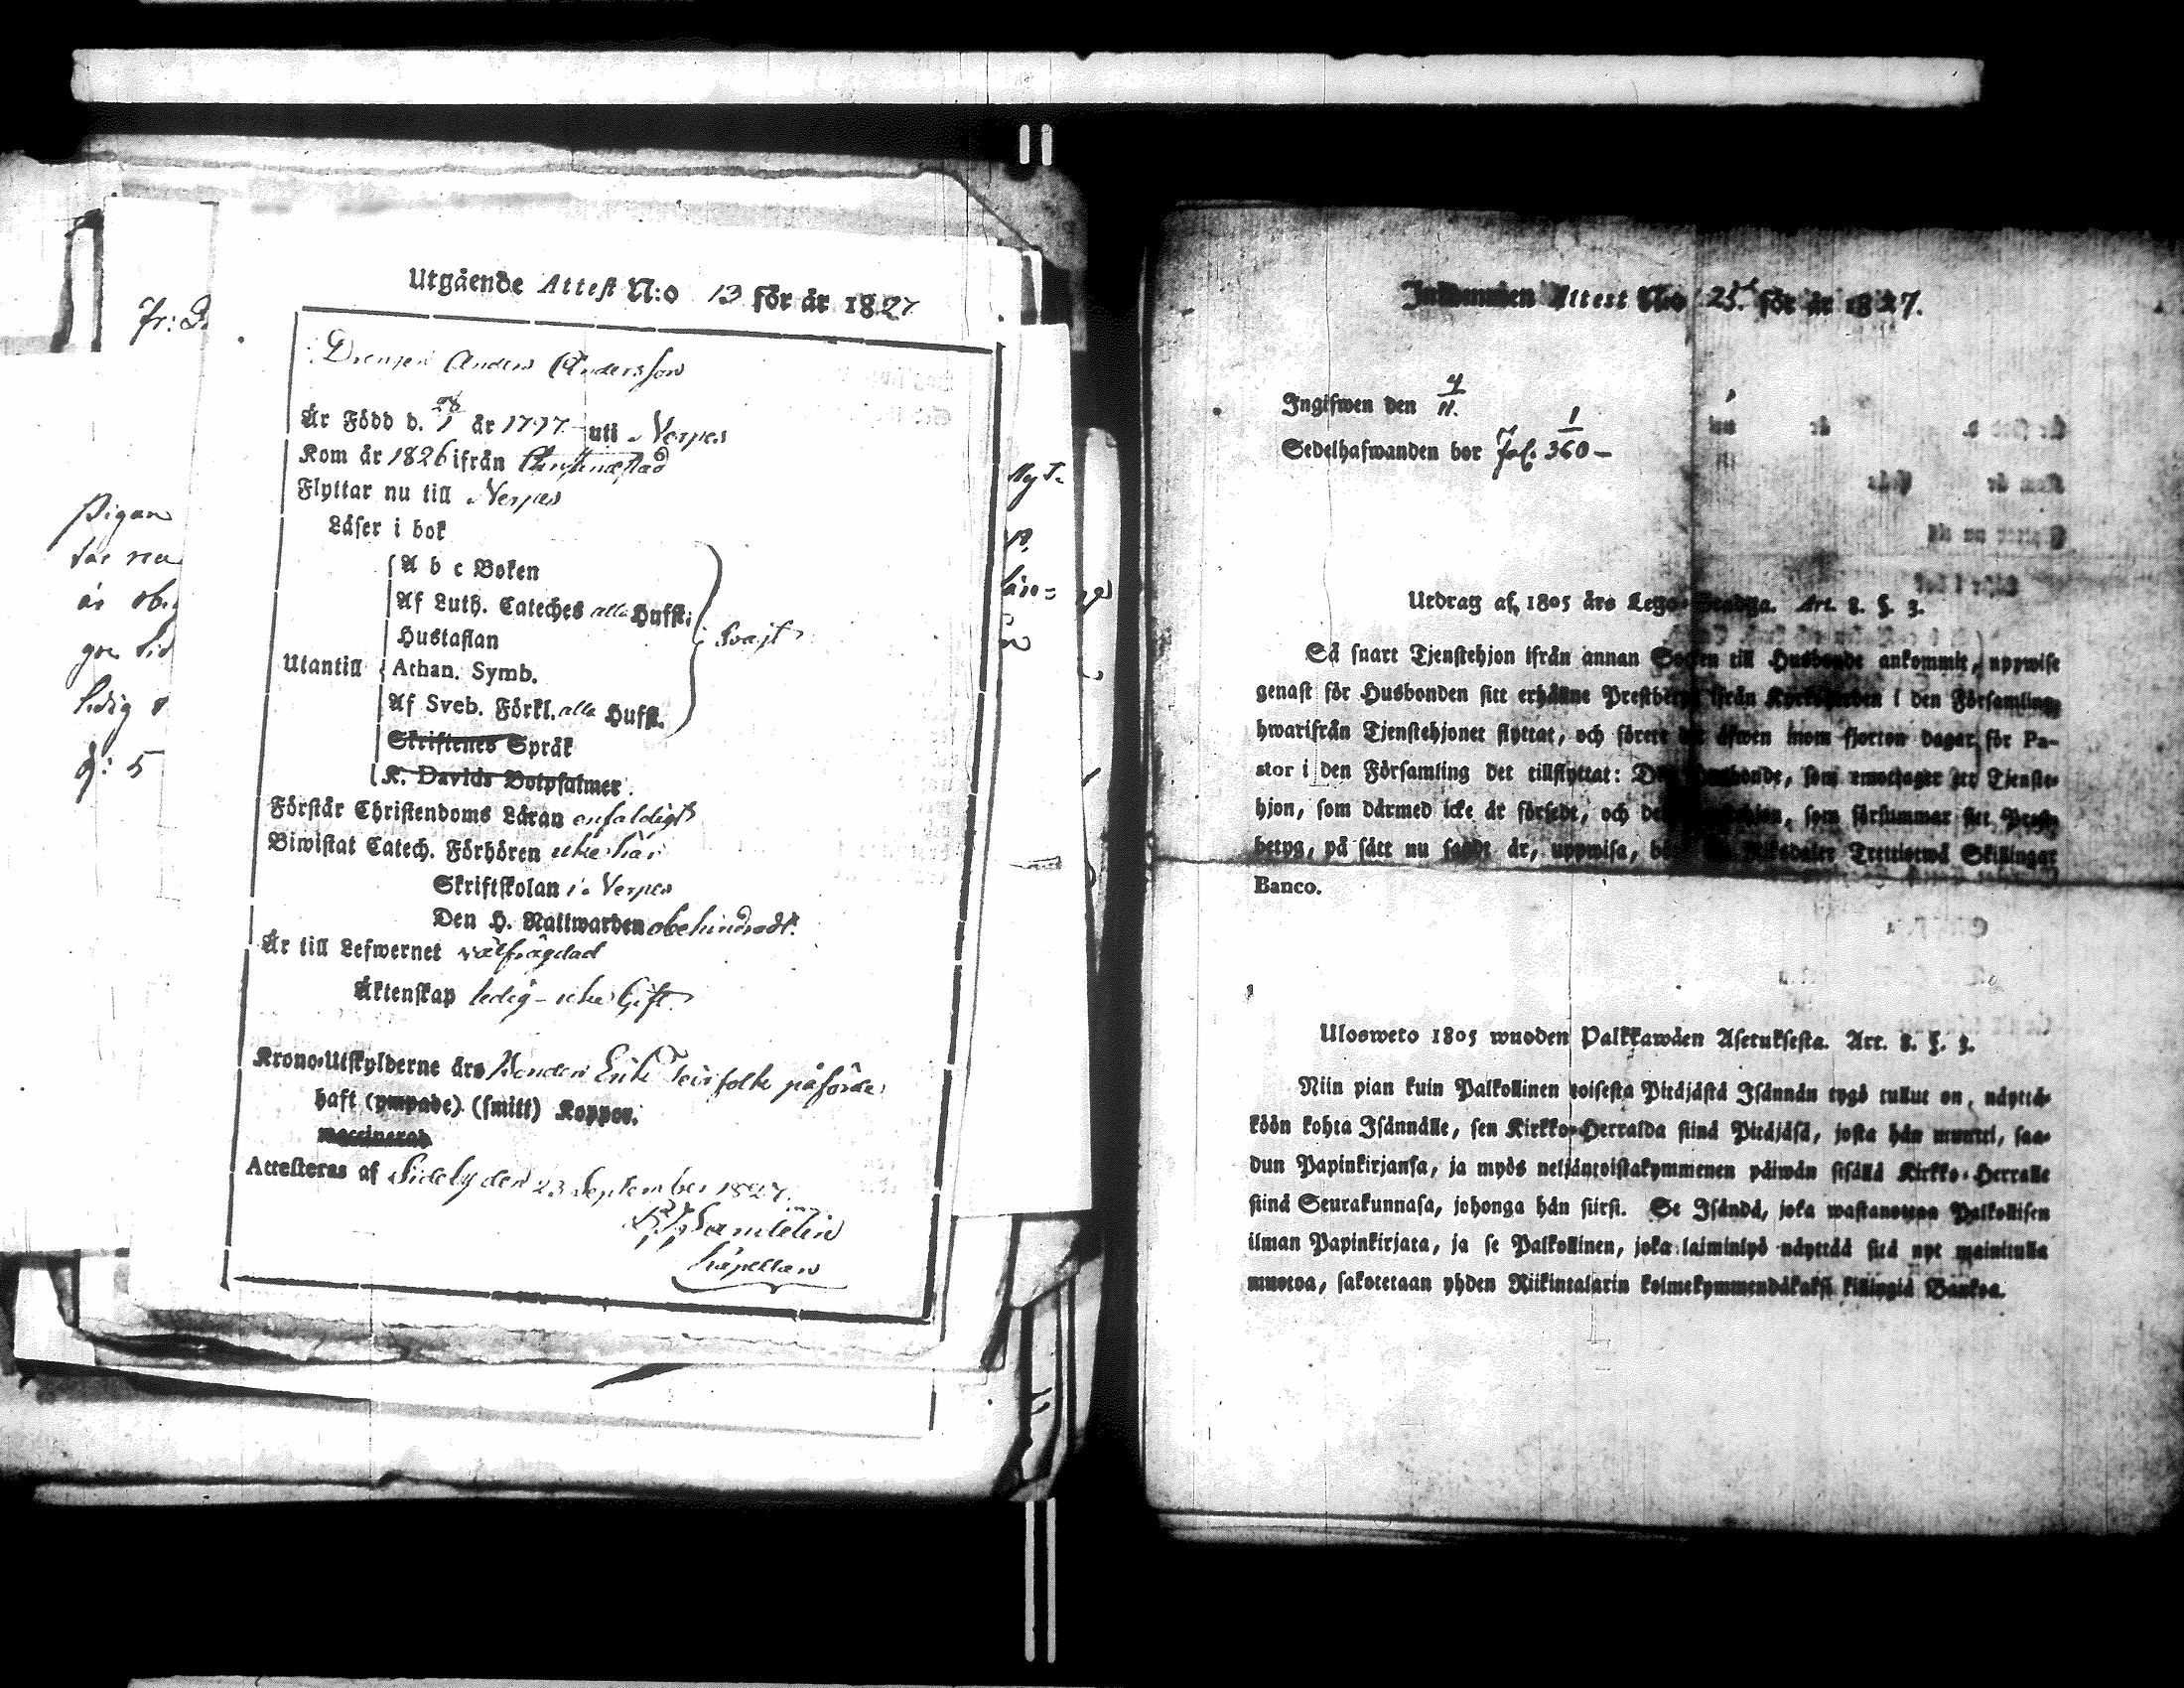 Utgående Attest N:o 13 för år 1827
Drengen Anders Andersson
År Född d. år 1797 uti Nerpes
Kom år 1826 ifrån Christinæstad
Flyttar nu till Nerpes
Läser i bok
A b c Boken
Af Luth. Cateches alla Hufst:
Hustaflan
Utantill
Athan. Symb.
Af Sveb. Förkl. alla Hufst.
Skriftenes Språk
K. Davids Botpsalmer.
Förstår Christendoms Läran enfaldigt
Biwistat Catech. Förhören icke här
Skriftskolan i Nerpes
Den H. Nattwarden obehindradt.
Är till Lefwernet välfrägdad
Äktenskap ledig - icke Gift
Krono-Utskylderne äro Bonden Erik påförde
haft (ympade) (smitt) Koppor.
vaccinerad
Attesteras af Sideby den 23 September 1827.
Kapellan
Fr:
Pigan
ledig
Inkommen Attest N:o 25 för år 1827.
Ingifwen den 4/11.
Sedelhafwanden bor Fol. 1/360 -
Utdrag af 1805 års Lego-Stadga. Art. 8. §. 3.
Så snart Tjenstehjon ifrån annan Socken till Husbonde ankommit, uppwise
genast för Husbonden sitt erhållne Prestbetyg ifrån Kyrkoherden i den Församling,
hwarifrån Tjenstehjonet flyttat, och förete det äfwen inom fjorton dagar för Pa-
stor i den Församling det tillflyttat: Den Husbonde, som emottager ett Tjenste-
hjon, som därmed icke är försedt, och det Tjenstehjon, som försummar sitt Prest-
betyg, på sätt nu sagdt är, uppwisa, Riksdaler Trettiotwå Skillingar
Banco.
Ulosweto 1805 wuoden Palkkawäen Asetuksesta. Art. 8. §. 3.
Niin pian kuin Palkollinen toisesta Pitäjästä Isännän tygö tullut on, näyttä-
köön kohta Isännälle, sen Kirkko-Herralda siinä Pitäjäsä, josta hän muutti, saa-
dun Papinkirjansa, ja myös neljäntoistakymmenen päiwän sisällä Kirkko-Herralle
siinä Seurakunnasa, johonga hän siirsi. Se Isändä, joka wastanottaa Palkollisen
ilman Papinkirjata, ja se Palkollinen, joka laiminlyö näyttää sitä nyt mainitulla
muotoa, sakotetaan yhden Riikintalarin kolmekymmendäkaksi killingiä Bankoa.